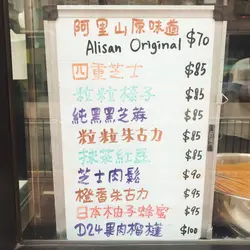 阿里山原味
Alisan Original $70
四重芝士 $85
粒粒榛子 $85
純黑黑芝麻 $85
粒粒朱古力 $85
抹茶紅豆 $85
芝士肉鬆 $90
橙香朱古力 $95
日本柚子蜂蜜 $95
D24果肉榴槤 $100